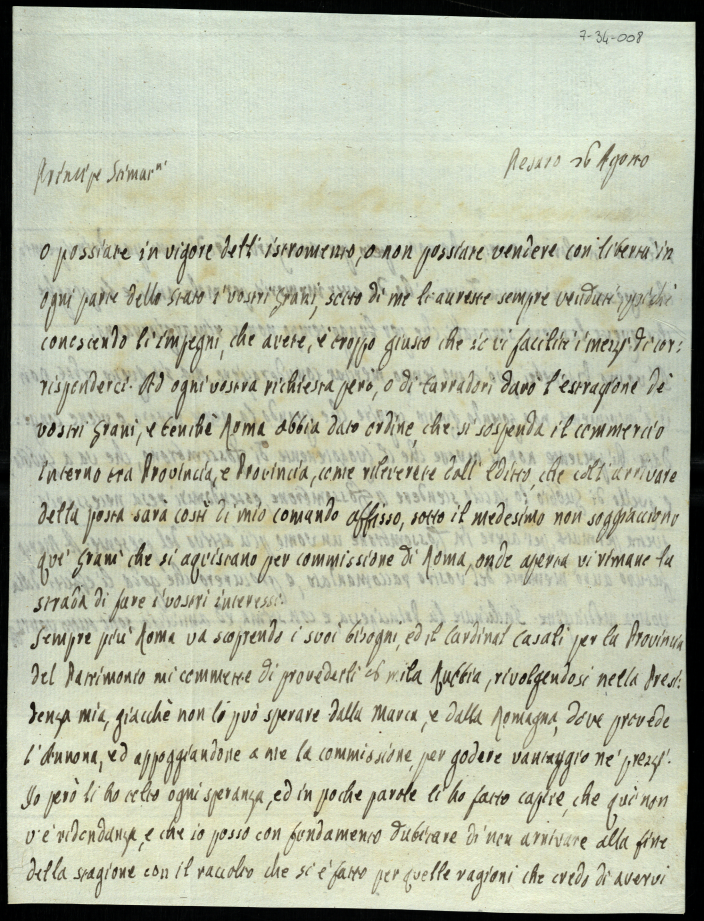 7-34-008
Pesaro 26 Agosto
Principe Stimat.mi
O possiate in vigore dell'istromento, o non possiate vendere con libertà in
ogni parte dello Stato i vostri grani, sotto di me li aureste sempre venduti,
conoscendo l'impegni, che avete, è troppo giusto che se vi faciliti i mezzi di cor:
risponderci. Ad ogni vostra richiesta però, o di Carradori darò l'estrazione de'
vostri grani, e benchè Roma abbia dato ordine, che si sospenda il commercio
interno tra Provincia, e Provincia, come rileverete dall'Editto, che coll'arrivare
della posta sarà costì di mio comando affisso, sotto il medesimo non soggiacciono
que' grani che si aquistano per commissione di Roma, onde aperta vi rimane la
strada di fare i vostri interessi.
Sempre più Roma va scoprendo i suoi bisogni, ed il Cardinal Casali per la Provincia
del Patrimonio mi commette di provederli 26 mila Rubbia, rivolgendosi nella Presi:
denza mia, giacchè non lo può sperare dalla Marca, e dalla Romagna, dove provede
l'Annona, ed appoggiandone a me la commissione, per godere vantaggio ne' prezzi.
Io però li ho tolto ogni speranza, ed in poche parole li ho fatto capire, che quì non
v'è ridondanza, e che io posso con fondamento dubitare di non arrivare alla fine
della stagione con il raccolto che si è fatto per quelle ragioni che credo di avervi